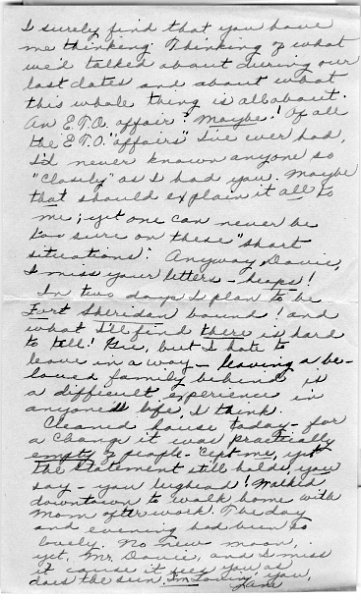 I surely find that you have
me thinking. Thinking of what
we'd talked about during our
last dates and about what
this whole thing is all about.
An E.T.O. affair? Maybe! Of all
the E.T.O. "affairs" I've ever had,
I'd never known anyone so
"closely" as I had you. Maybe
that should explain it all to
me; yet one can never be
too sure on these "short
situations". Anyway Davie,
I miss your letters - heaps!
In two days I plan to be
Fort Sheridan bound! and
what I'll find there is hard
to tell! Gee, but I hate to
leave in a way - leaving a be-
loved family behind is
a difficult experience in
anyone's life, I think.
Cleaned house today - for
a change it was practically
empty of people - 'cept me, yet
the statement still holds, you
say - you lughead! Walked
downtown to walk home with
Mom after work. The day
and evening had been so
lovely. No new moon,
yet, Mr. Davie, and I miss
it cause it you as
does the sun. I'm you,
Jane